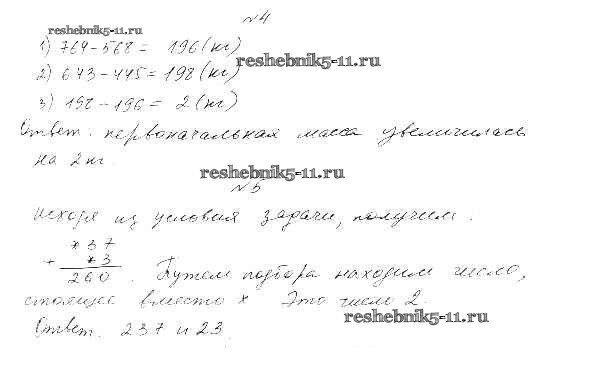 №4
reshebnik5-11.ru
1) 764-568= 196(кг)
reshebnik5-11.ru
2) 643-445=198(кг)
3) 198-196= 2(кг)
Ответ. первоначальная масса увеличилась
на 2 кг.
reshebnik5-11.ru
№5
Исходя из условия задачи, получим.
*37
+ *3
260. Путем подбора находим число,
стоящее вместо * Это число 2.
reshebnik5-11.ru
Ответ. 237 и 23.